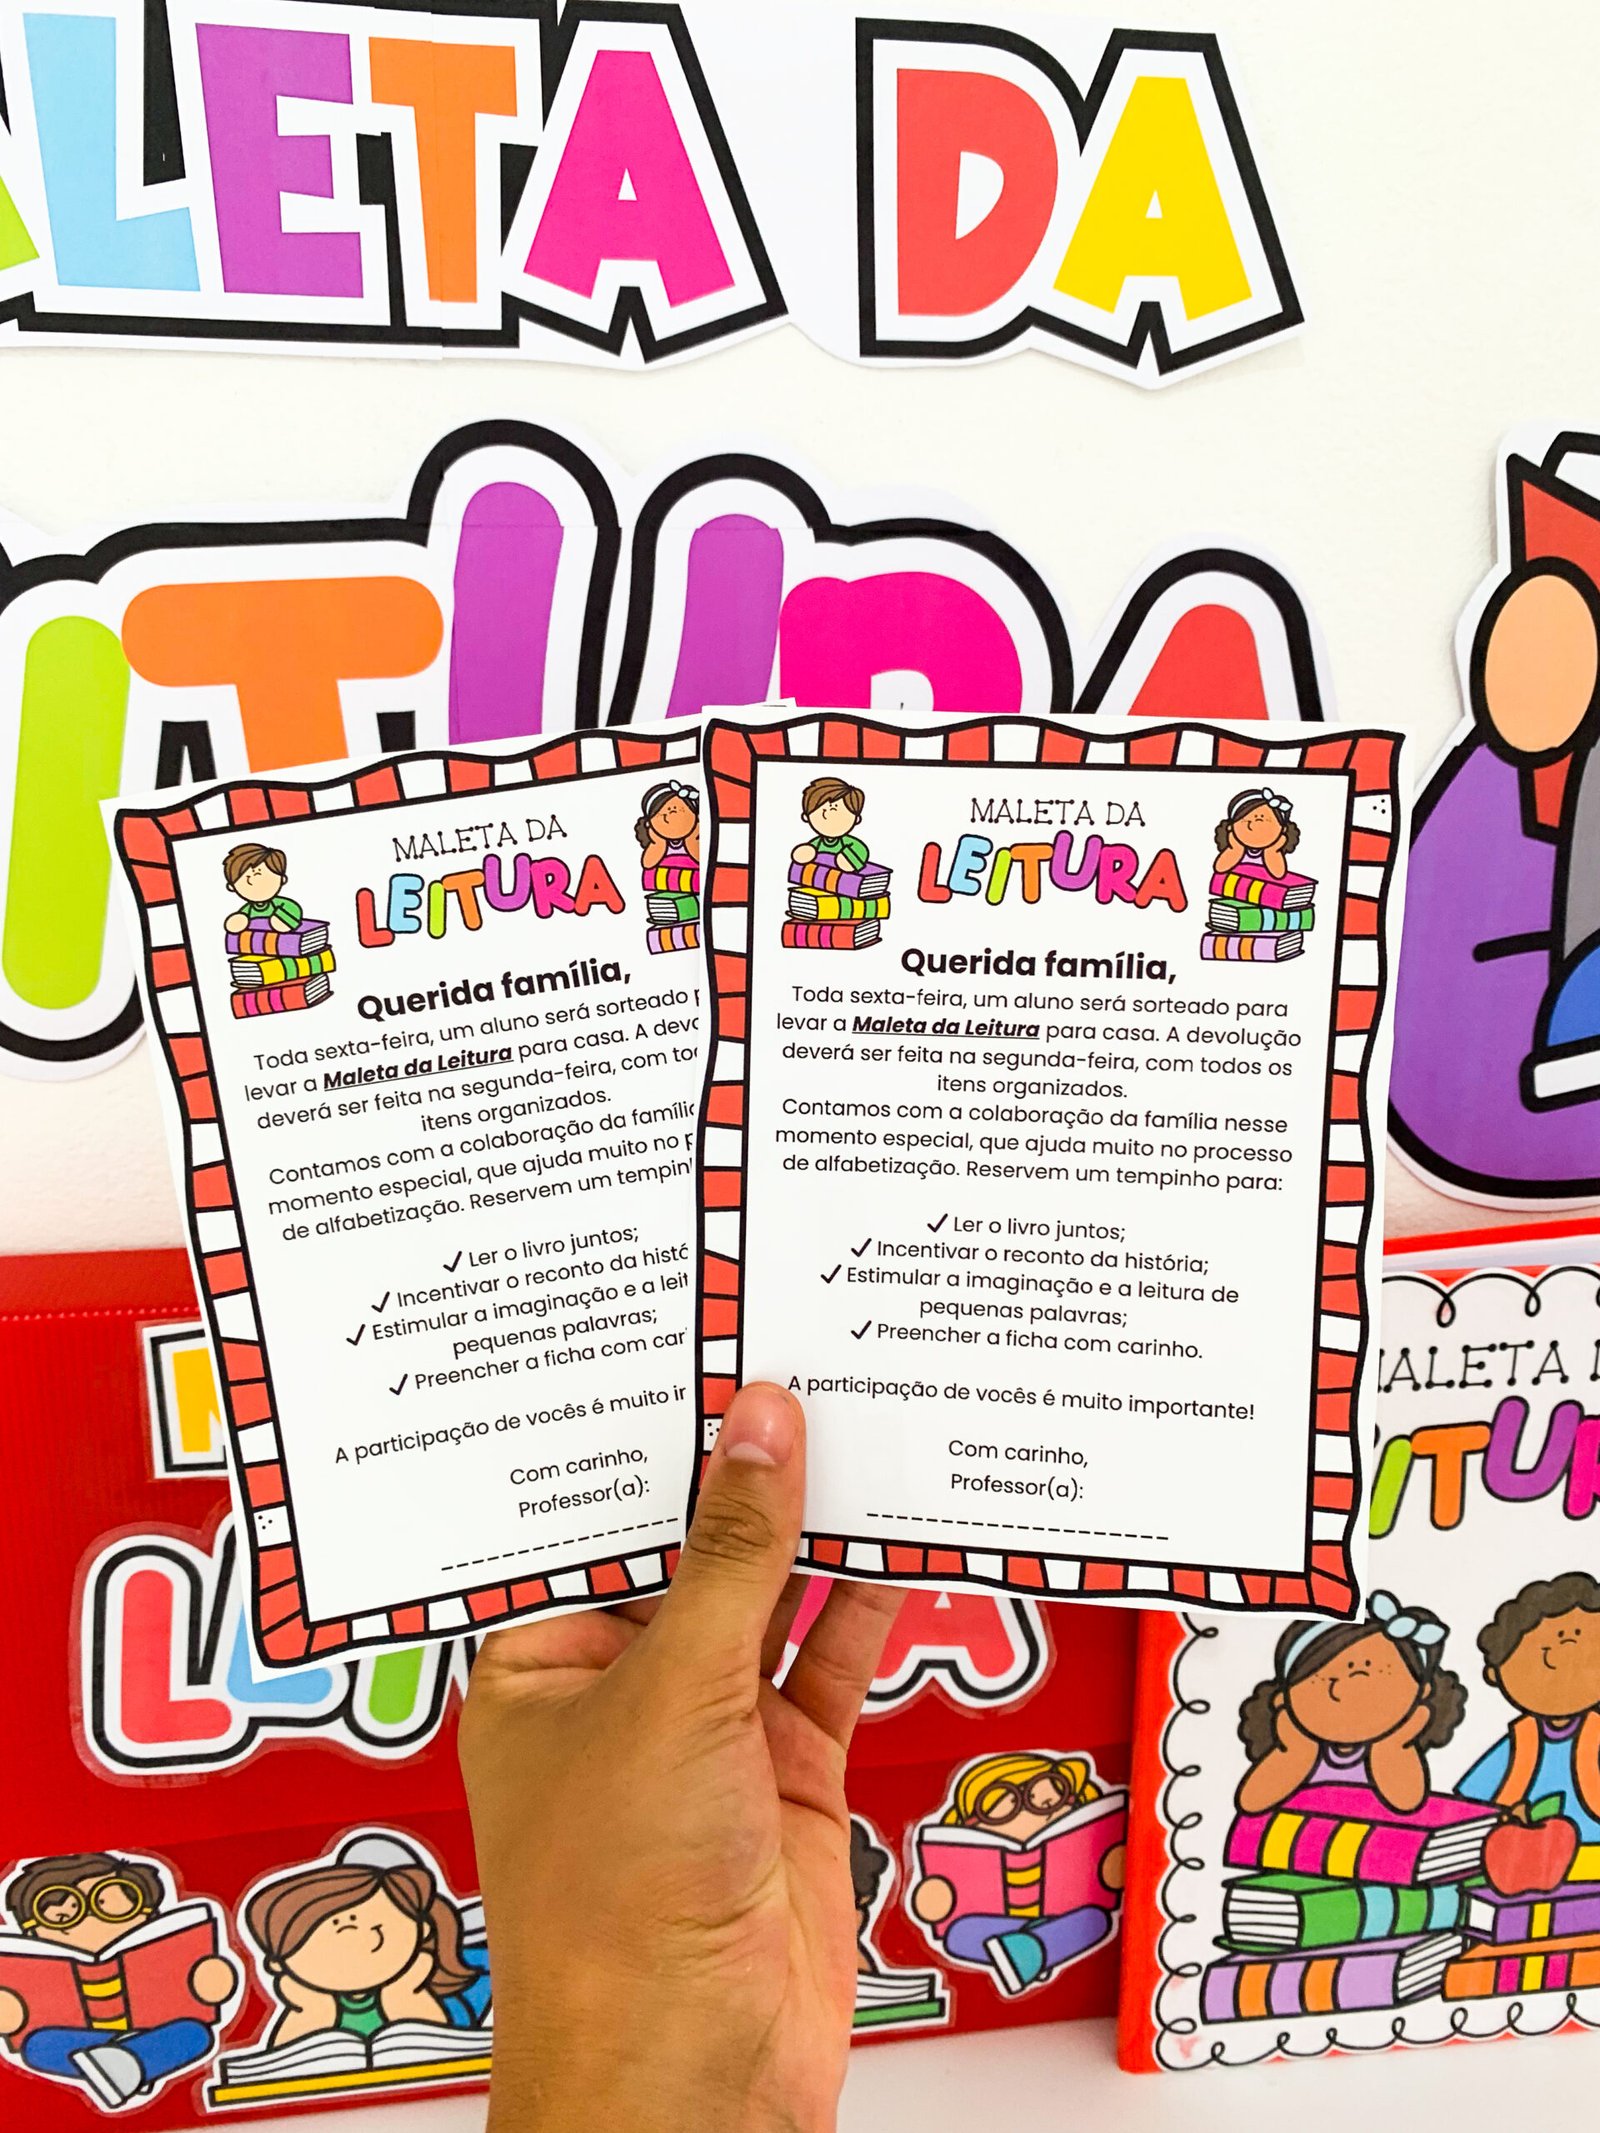 MALETA DA
LEITURA
Querida família,
Toda sexta-feira, um aluno será sorteado
levar a Maleta da Leitura para casa. A
deverá ser feita na segunda-feira, com
itens organizados.
Contamos com a colaboração da
momento especial, que ajuda muito no
de alfabetização. Reservem um
✓ Ler o livro juntos;
✓ Incentivar o reconto da
✓ Estimular a imaginação e a
pequenas palavras;
✓ Preencher a ficha com
A participação de vocês é muito
Com carinho,
Professor(a):
MALETA DA
LEITURA
Querida família,
Toda sexta-feira, um aluno será sorteado para
levar a Maleta da Leitura para casa. A devolução
deverá ser feita na segunda-feira, com todos os
itens organizados.
Contamos com a colaboração da família nesse
momento especial, que ajuda muito no processo
de alfabetização. Reservem um tempinho para:
✓ Ler o livro juntos;
✓ Incentivar o reconto da história;
✓ Estimular a imaginação e a leitura de
pequenas palavras;
✓ Preencher a ficha com carinho.
A participação de vocês é muito importante!
Com carinho,
Professor(a):
ALETA DA
ITURA
ALETA
ITUR